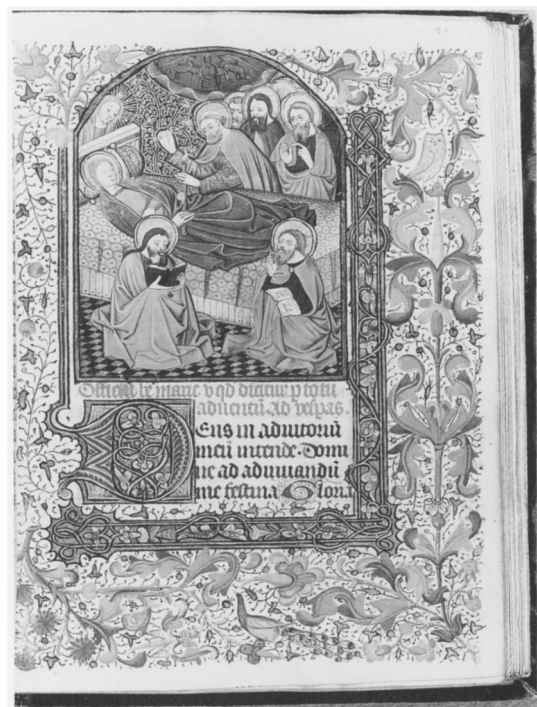 Officiū bē marie v qd dicitur p totū
aduentū. Ad vespas.
Deus in adiutoriū
meū intende. Domi
ne ad adiuuandū
me festina Gloria